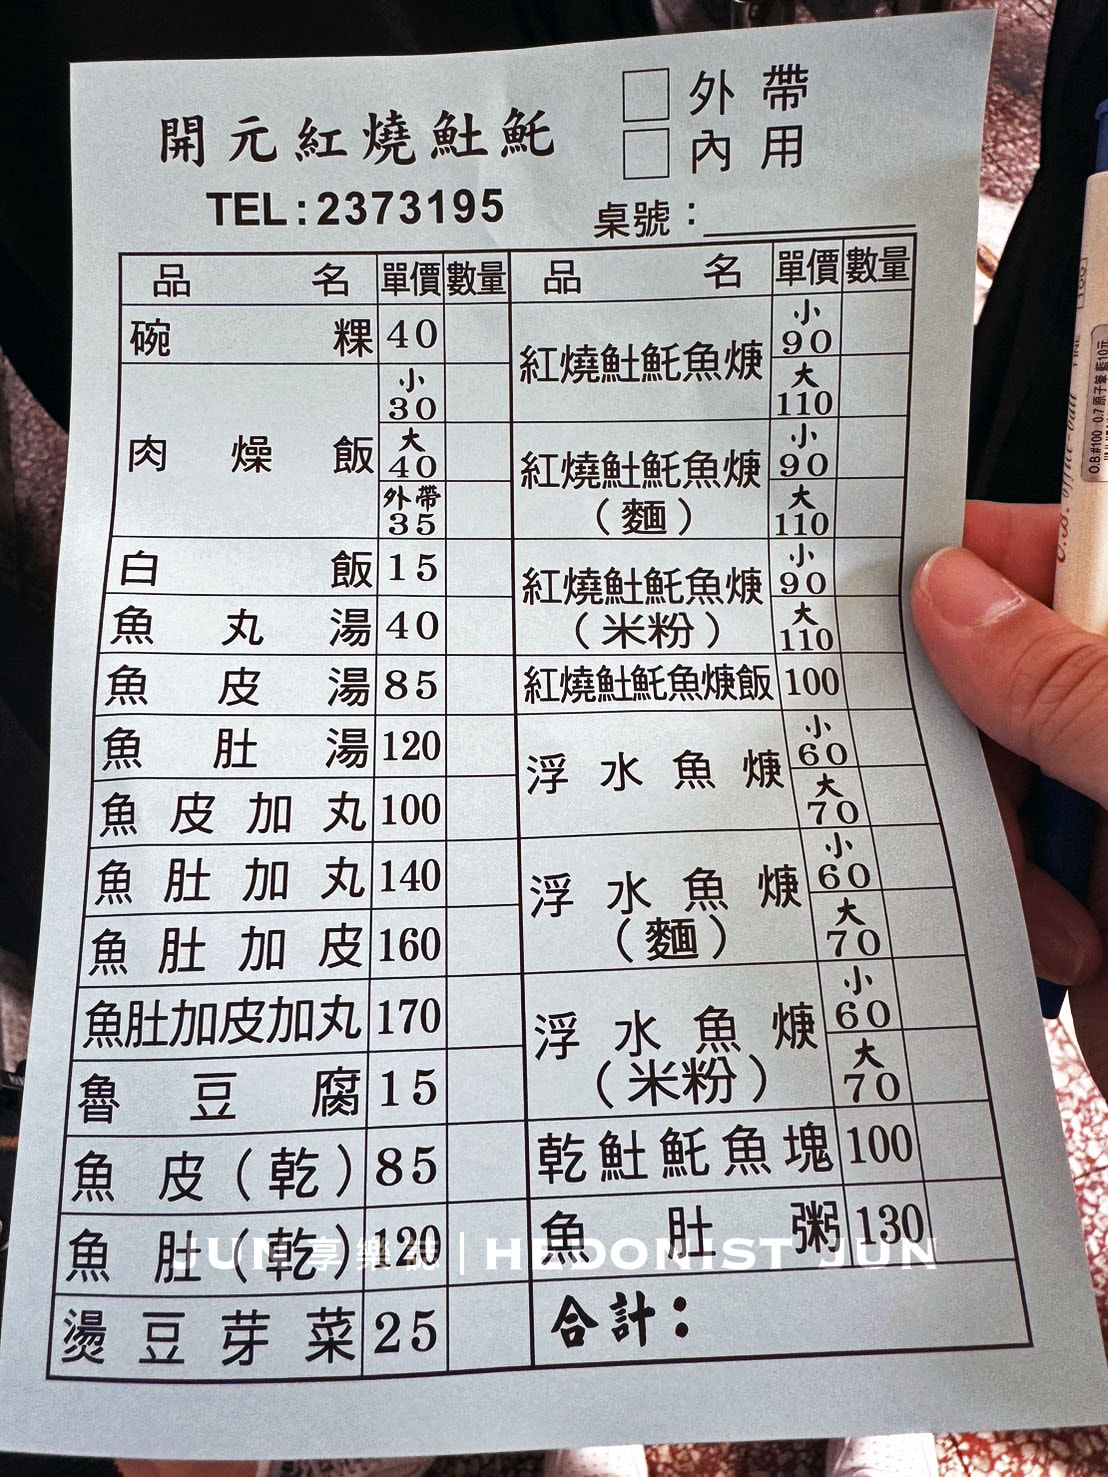 開元紅燒魠魠
TEL:2373195
外帶
內用
桌號：
品名 單價 數量
碗粿 40
肉燥飯 小 30
大 40
外帶 35
白飯 15
魚丸湯 40
魚皮湯 85
魚肚湯 120
魚皮加丸 100
魚肚加丸 140
魚肚加皮 160
魚肚加皮加丸 170
魯豆腐 15
魚皮(乾) 85
魚肚(乾) 120
燙豆芽菜 25
品名 單價 數量
紅燒魠魠魚焿 小 90
大 110
紅燒魠魠魚焿 小 90
(麵) 大 110
紅燒魠魠魚焿 小 90
(米粉) 大 110
紅燒魠魠魚焿飯 100
浮水魚焿 小 60
大 70
浮水魚焿 小 60
(麵) 大 70
浮水魚焿 小 60
(米粉) 大 70
乾魠魠魚塊 100
魚肚粥 130
合計：
JUN 享樂誌 | HEDONIST JUN